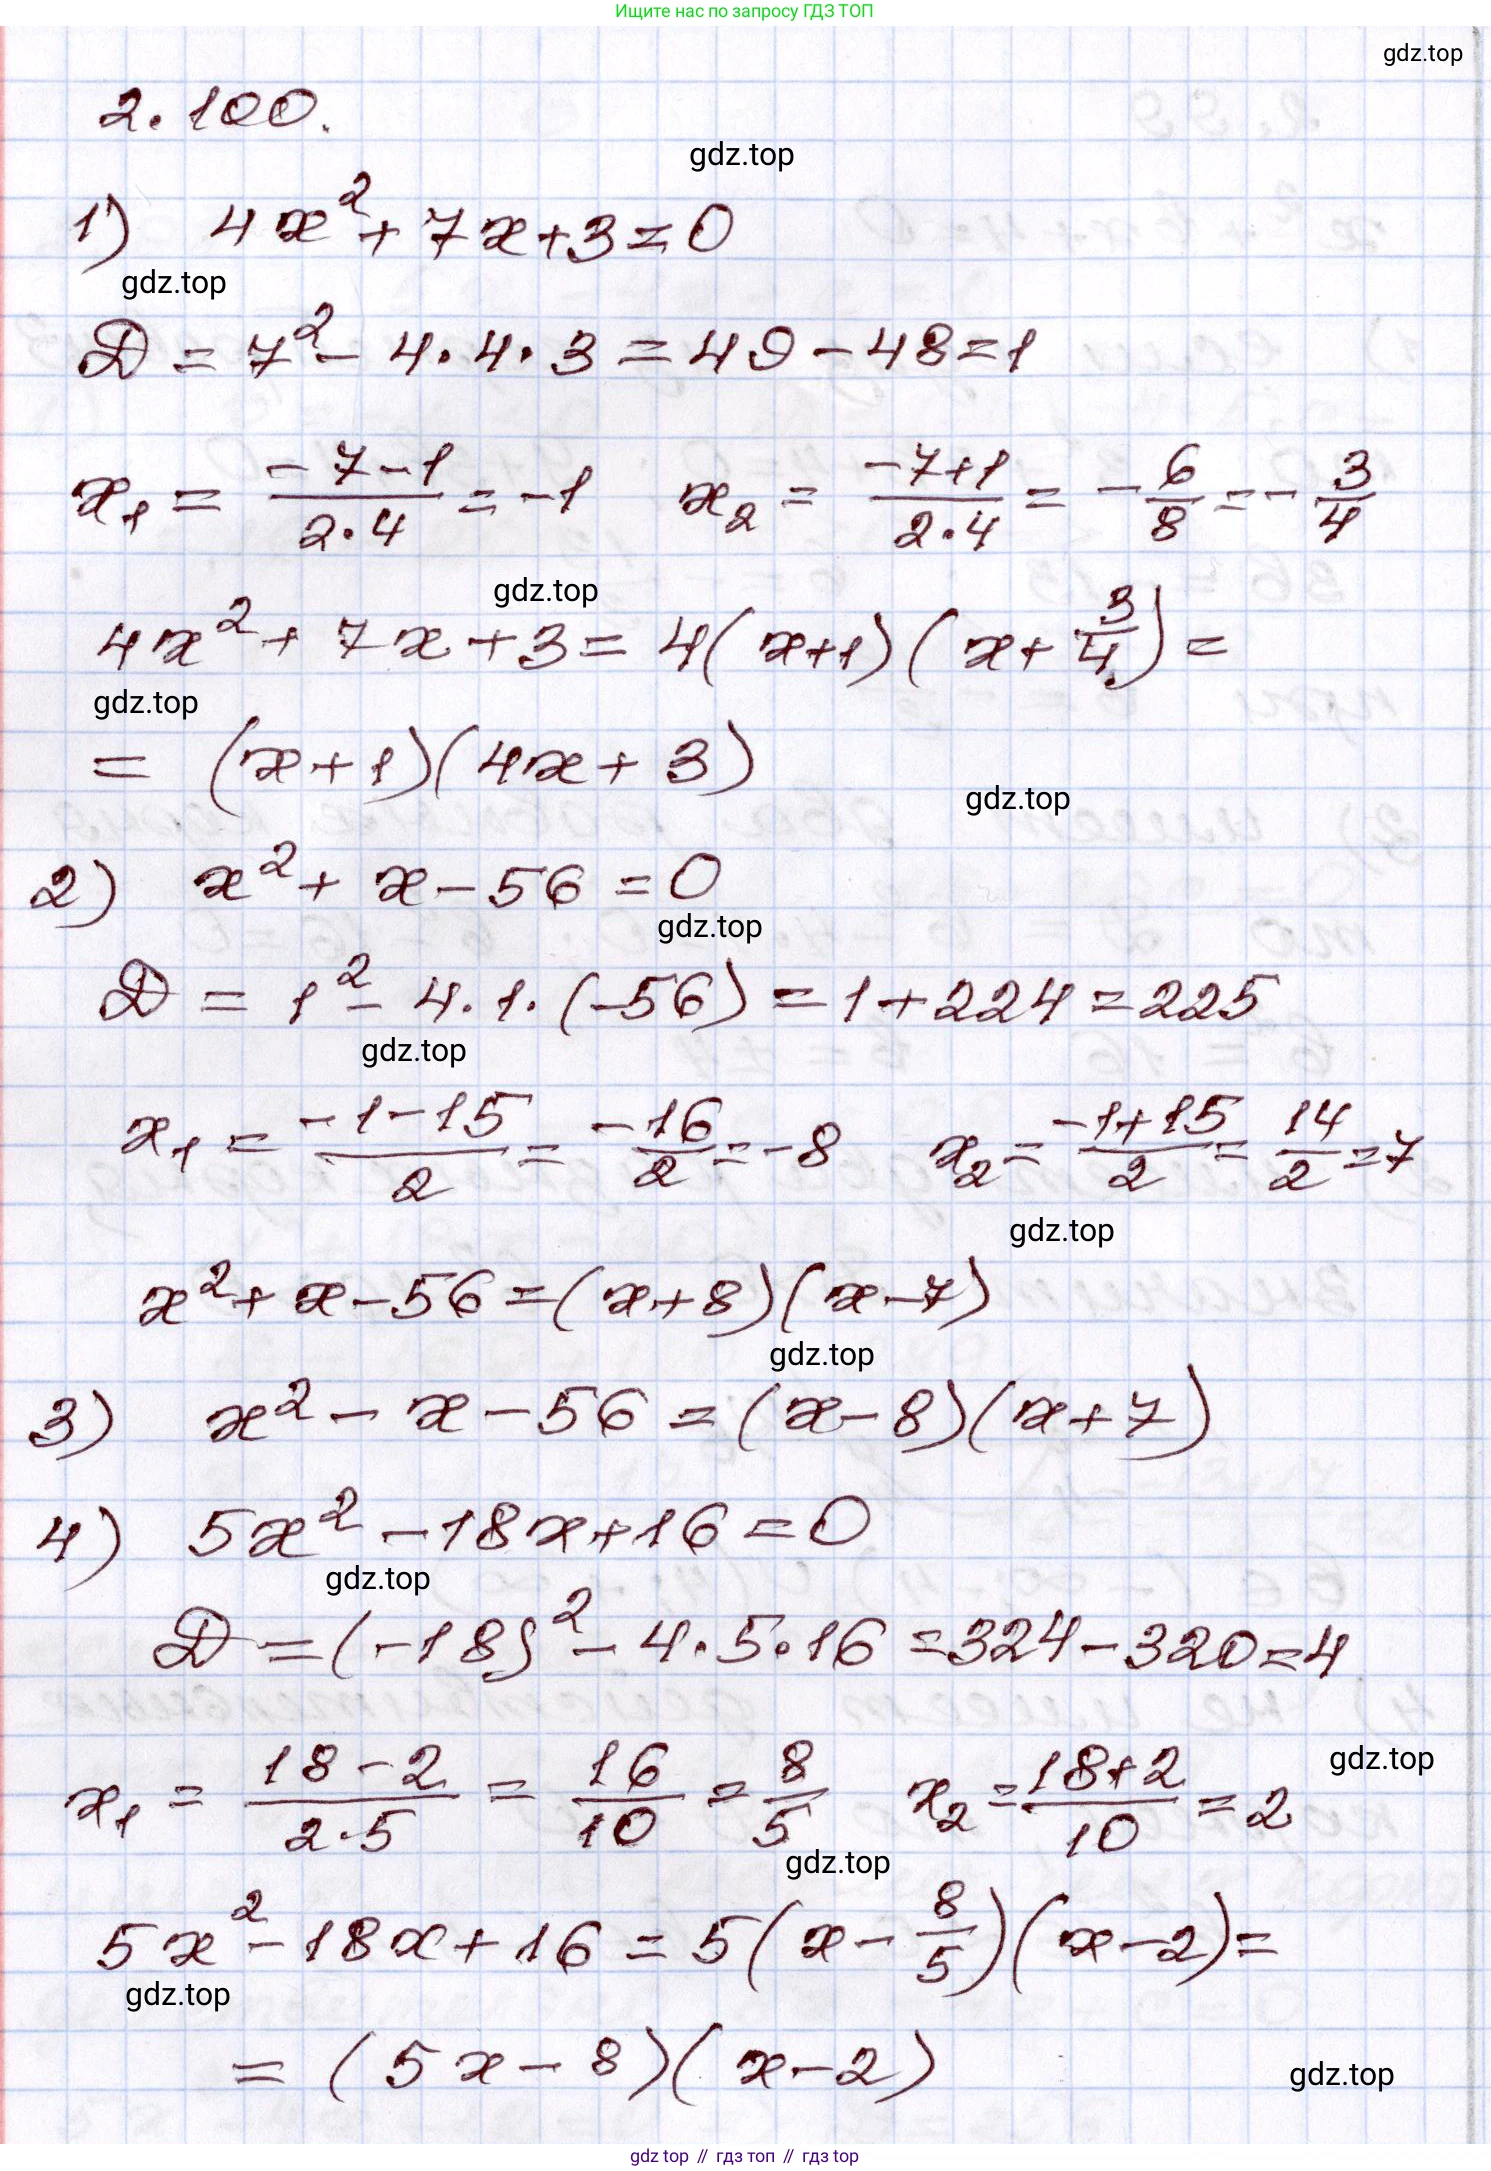 Ищите нас по запросу ГДЗ ТОП
gdz.top
2.100.
gdz.top
1) 4x² + 7x + 3 = 0
gdz.top
D = 7² - 4·4·3 = 49 - 48 = 1
x₁ = (-7-1)/(2·4) = -1 x₂ = (-7+1)/(2·4) = -6/8 = -3/4
gdz.top
4x² + 7x + 3 = 4(x+1)(x+3/4) =
gdz.top
= (x+1)(4x+3)
gdz.top
2) x² + x - 56 = 0
gdz.top
D = 1² - 4·1·(-56) = 1 + 224 = 225
gdz.top
x₁ = (-1-15)/2 = -16/2 = -8 x₂ = (-1+15)/2 = 14/2 = 7
gdz.top
x² + x - 56 = (x+8)(x-7)
gdz.top
3) x² - x - 56 = (x-8)(x+7)
4) 5x² - 18x + 16 = 0
gdz.top
D = (-18)² - 4·5·16 = 324 - 320 = 4
gdz.top
x₁ = (18-2)/(2·5) = 16/10 = 8/5 x₂ = (18+2)/10 = 2
gdz.top
5x² - 18x + 16 = 5(x - 8/5)(x-2) =
gdz.top
= (5x-8)(x-2)
gdz.top
gdz top // гдз топ // гдз top